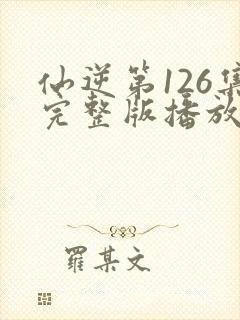 仙逆第126集
完整版播放
羅某文